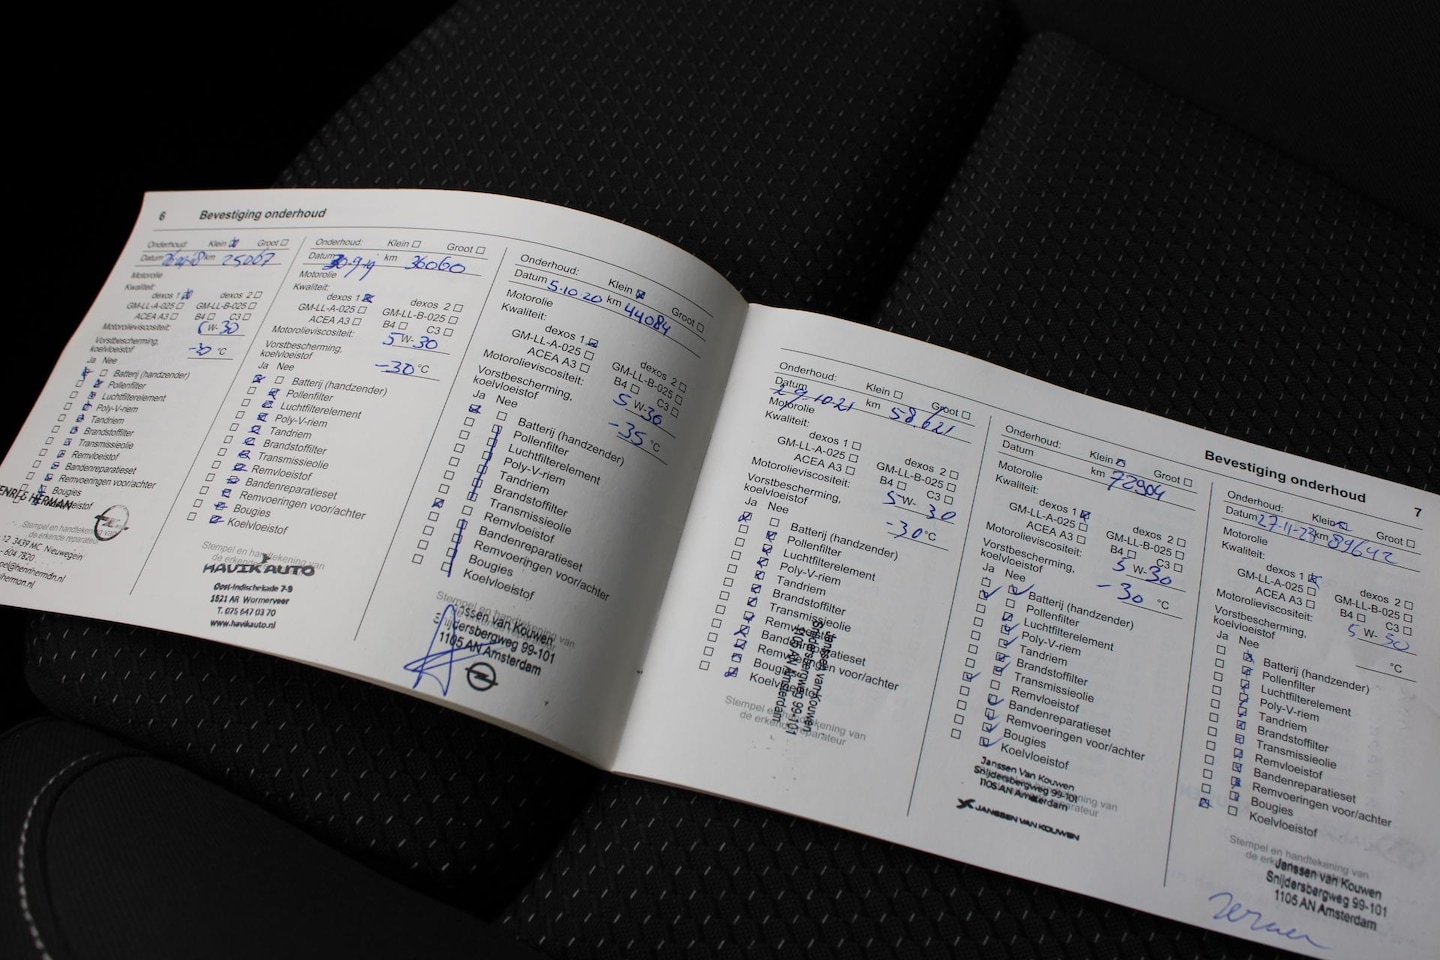 6 Bevestiging onderhoud
Onderhoud: Klein Groot
Datum km 25067
Motorolie
Kwaliteit:
dexos 1 dexos 2
GM-LL-A-025 GM-LL-B-025
ACEA A3 B4 C3
Motorolieviscositeit: W-30
Vorstbescherming,
koelvloeistof -30 °C
Ja Nee
Batterij (handzender)
Pollenfilter
Luchtfilterelement
Poly-V-riem
Tandriem
Brandstoffilter
Transmissieolie
Remvloeistof
Bandenreparatieset
Remvoeringen voor/achter
Bougies
HERMAN
Stempel en handtekening van
de erkende reparateur
12 3439 MC Nieuwegein
Onderhoud: Klein Groot
Datum 30-9-19 km 36060
Motorolie
Kwaliteit:
dexos 1 dexos 2
GM-LL-A-025 GM-LL-B-025
ACEA A3 B4 C3
Motorolieviscositeit: 5 W-30
Vorstbescherming,
koelvloeistof -30 °C
Ja Nee
Batterij (handzender)
Pollenfilter
Luchtfilterelement
Poly-V-riem
Tandriem
Brandstoffilter
Transmissieolie
Remvloeistof
Bandenreparatieset
Remvoeringen voor/achter
Bougies
Koelvloeistof
Stempel en handtekening van
HAVIK AUTO
Oost-Indischekade 7-9
1521 AR Wormerveer
T. 075 647 03 70
www.havikauto.nl
Onderhoud: Klein Groot
Datum 5-10 20 km 44084
Motorolie
Kwaliteit:
dexos 1 dexos 2
GM-LL-A-025 GM-LL-B-025
ACEA A3 B4 C3
Motorolieviscositeit: 5 W-30
Vorstbescherming,
koelvloeistof -35 °C
Ja Nee
Batterij (handzender)
Pollenfilter
Luchtfilterelement
Poly-V-riem
Tandriem
Brandstoffilter
Transmissieolie
Remvloeistof
Bandenreparatieset
Remvoeringen voor/achter
Bougies
Koelvloeistof
Stempel en handtekening van
Janssen van Kouwen
Snijdersbergweg 99-101
1105 AN Amsterdam
Bevestiging onderhoud 7
Onderhoud: Klein Groot
Datum 29-10-21 km 58621
Motorolie
Kwaliteit:
dexos 1 dexos 2
GM-LL-A-025 GM-LL-B-025
ACEA A3 B4 C3
Motorolieviscositeit: 5 W-30
Vorstbescherming,
koelvloeistof -30 °C
Ja Nee
Batterij (handzender)
Pollenfilter
Luchtfilterelement
Poly-V-riem
Tandriem
Brandstoffilter
Transmissieolie
Remvloeistof
Bandenreparatieset
Remvoeringen voor/achter
Bougies
Koelvloeistof
Stempel en handtekening van
de erkende reparateur
Janssen van Kouwen
Snijdersbergweg 99-101
1105 AN Amsterdam
Onderhoud: Klein Groot
Datum km 72904
Motorolie
Kwaliteit:
dexos 1 dexos 2
GM-LL-A-025 GM-LL-B-025
ACEA A3 B4 C3
Motorolieviscositeit: 5 W-30
Vorstbescherming,
koelvloeistof -30 °C
Ja Nee
Batterij (handzender)
Pollenfilter
Luchtfilterelement
Poly-V-riem
Tandriem
Brandstoffilter
Transmissieolie
Remvloeistof
Bandenreparatieset
Remvoeringen voor/achter
Bougies
Koelvloeistof
Janssen Van Kouwen
Snijdersbergweg 99-101
1105 AN Amsterdam
JANSSEN VAN KOUWEN
Onderhoud: Klein Groot
Datum km 89642
Motorolie
Kwaliteit:
dexos 1 dexos 2
GM-LL-A-025 GM-LL-B-025
ACEA A3 B4 C3
Motorolieviscositeit: 5 W-30
Vorstbescherming,
koelvloeistof °C
Ja Nee
Batterij (handzender)
Pollenfilter
Luchtfilterelement
Poly-V-riem
Tandriem
Brandstoffilter
Transmissieolie
Remvloeistof
Bandenreparatieset
Remvoeringen voor/achter
Bougies
Koelvloeistof
Stempel en handtekening van
Janssen van Kouwen
Snijdersbergweg 99-101
1105 AN Amsterdam